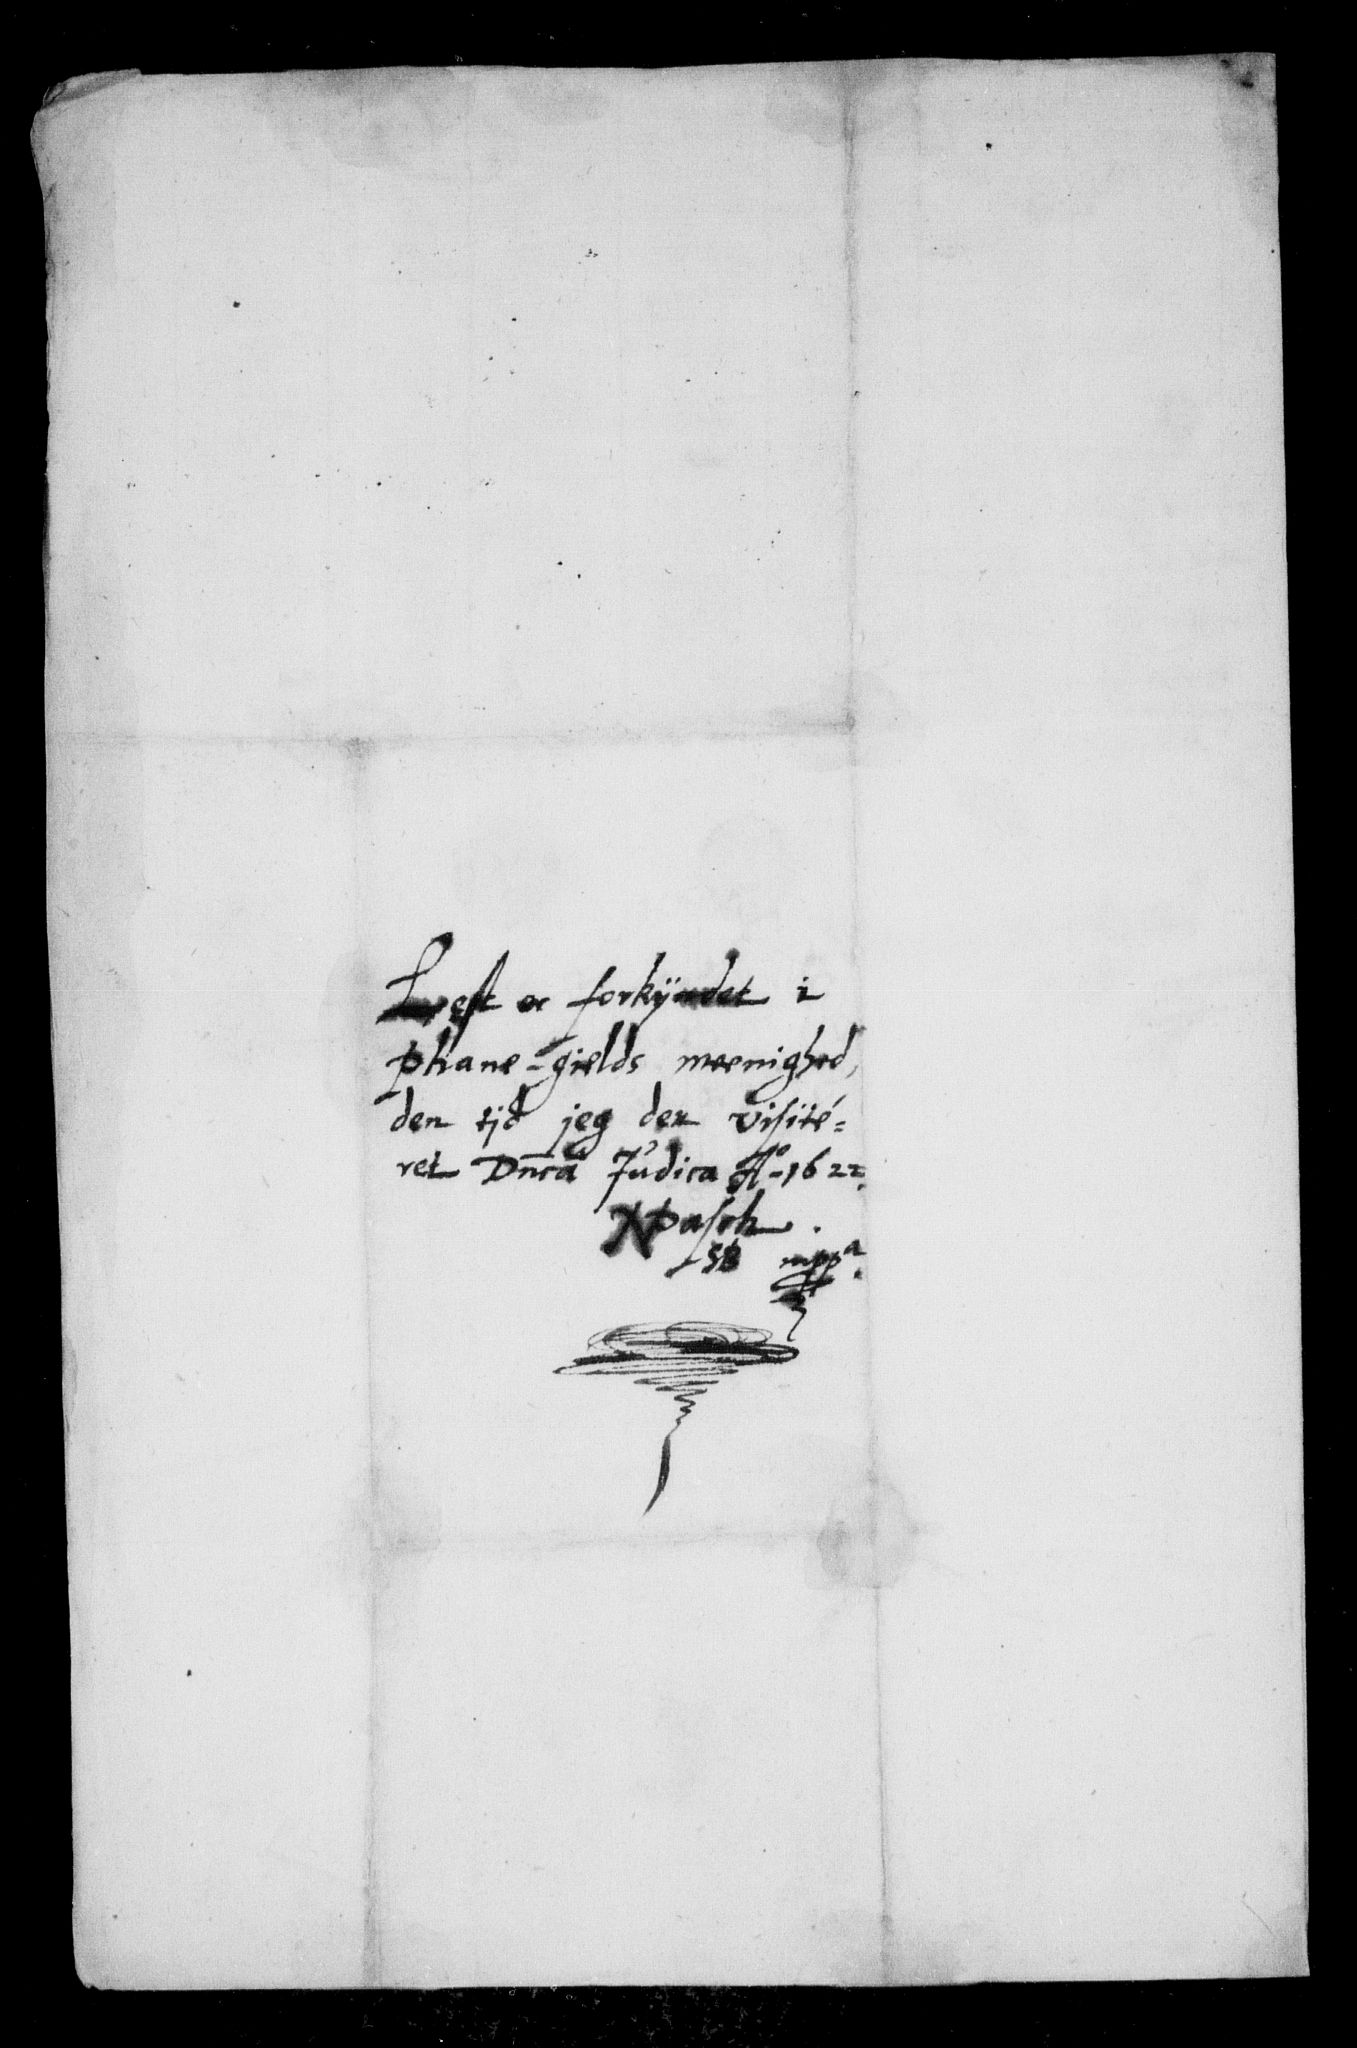 Lest oc forkÿndet i
phane-gields meenighed,
den tjd jeg der visité=
ret Dnicâ Judica Aº-1622.
NPasch .
SB mppª.